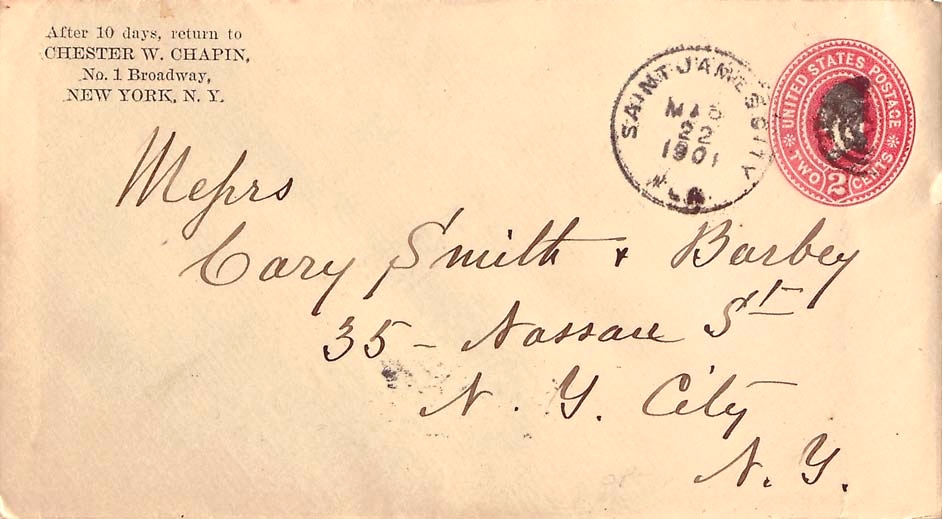 After 10 days, return to
CHESTER W. CHAPIN,
No. 1 Broadway,
NEW YORK, N. Y.
SAINT JAMES CITY
MAR
22
1901
UNITED STATES POSTAGE
TWO 2 CENTS
Messrs
Cary Smith + Barbey
35 - Nassau St
N. Y. City
N. Y.